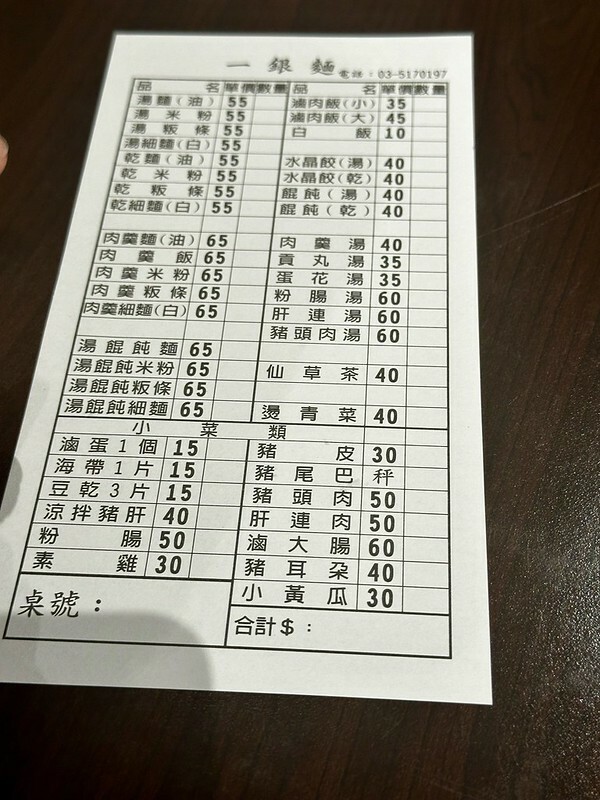 一銀麵 電話：03-5170197
品名 單價 數量 品名 單價 數量
湯麵(油) 55 滷肉飯(小) 35
湯米粉 55 滷肉飯(大) 45
湯粄條 55 白飯 10
湯細麵(白) 55
乾麵(油) 55 水晶餃(湯) 40
乾米粉 55 水晶餃(乾) 40
乾粄條 55 餛飩(湯) 40
乾細麵(白) 55 餛飩(乾) 40
肉羹麵(油) 65 肉羹湯 40
肉羹飯 65 貢丸湯 35
肉羹米粉 65 蛋花湯 35
肉羹粄條 65 粉腸湯 60
肉羹細麵(白) 65 肝連湯 60
豬頭肉湯 60
湯餛飩麵 65
湯餛飩米粉 65 仙草茶 40
湯餛飩粄條 65
湯餛飩細麵 65 燙青菜 40
小菜類
滷蛋1個 15 豬皮 30
海帶1片 15 豬尾巴 秤
豆乾3片 15 豬頭肉 50
涼拌豬肝 40 肝連肉 50
粉腸 50 滷大腸 60
素雞 30 豬耳朵 40
小黃瓜 30
桌號： 合計$：